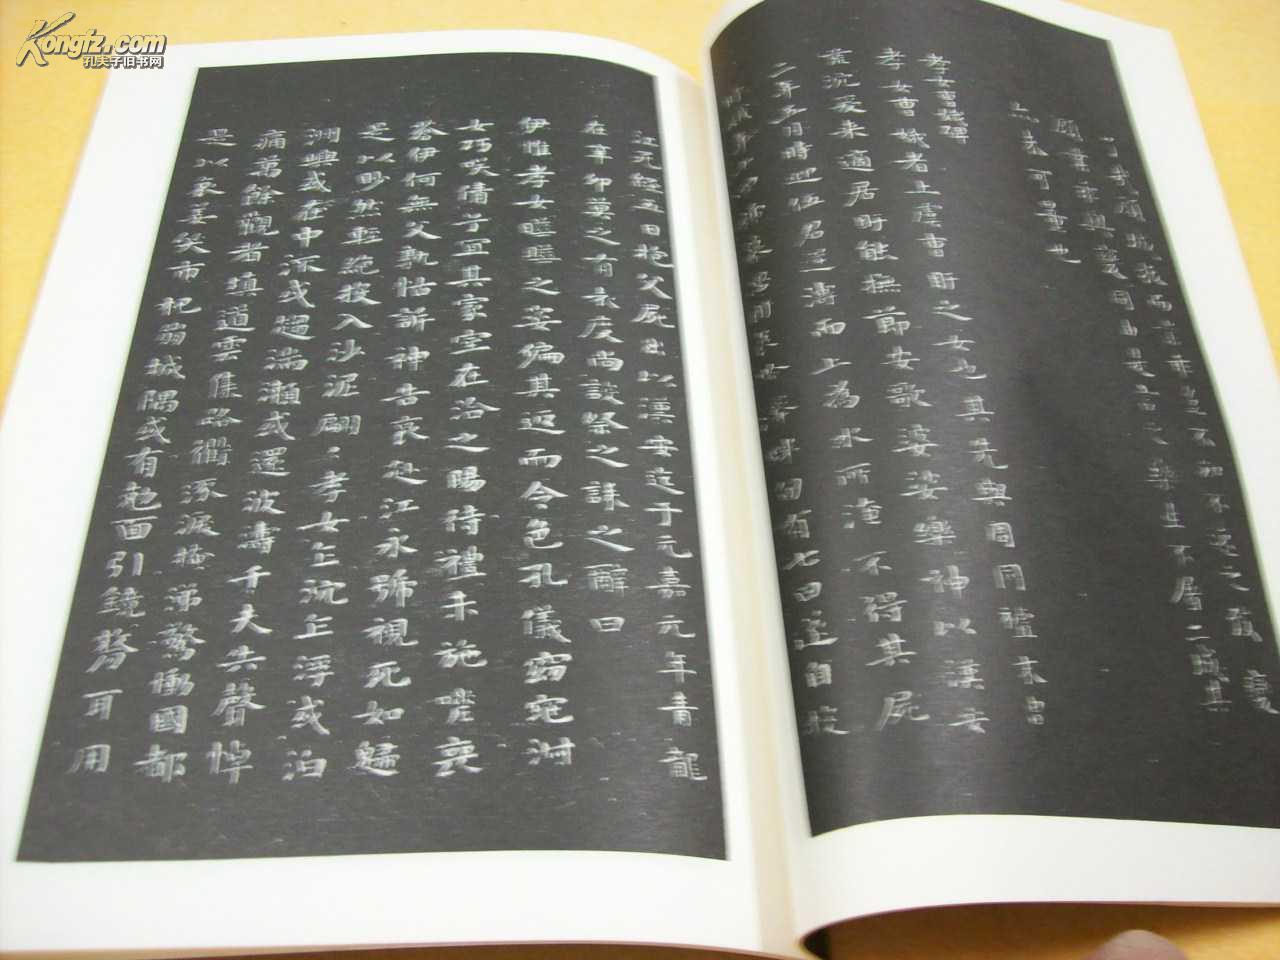 孝女曹娥碑
孝女曹娥者上虞曹盱之女也其先與周同祖末胄
荒沉爰来適居盱能撫節安歌婆娑樂神以漢安
二年五月時迎伍君逆濤而上為水所淹不得其屍
時娥年十四號慕思盱哀吟澤畔旬有七日遂自投
江死經五日抱父屍出以漢安迄于元嘉元年青龍
在辛卯莫之有表度尚設祭之誄之辭曰
伊惟孝女曄曄之姿偏其返而令色孔儀窈窕淑
女巧笑倩兮宜其家室在洽之陽待禮未施嗟喪
蒼伊何無父孰怙訴神告哀赴江永號視死如歸
是以眇然輕絶投入沙泥翩〻孝女乍沉乍浮或泊
洲嶼或在中流或趨湍瀨或還波濤千夫失聲悼
痛萬餘觀者填道雲集路衢流淚掩涕驚慟國都
是以哀姜哭市杞崩城隅或有剋面引鏡剺耳用
Kongfz.com
孔夫子旧书网